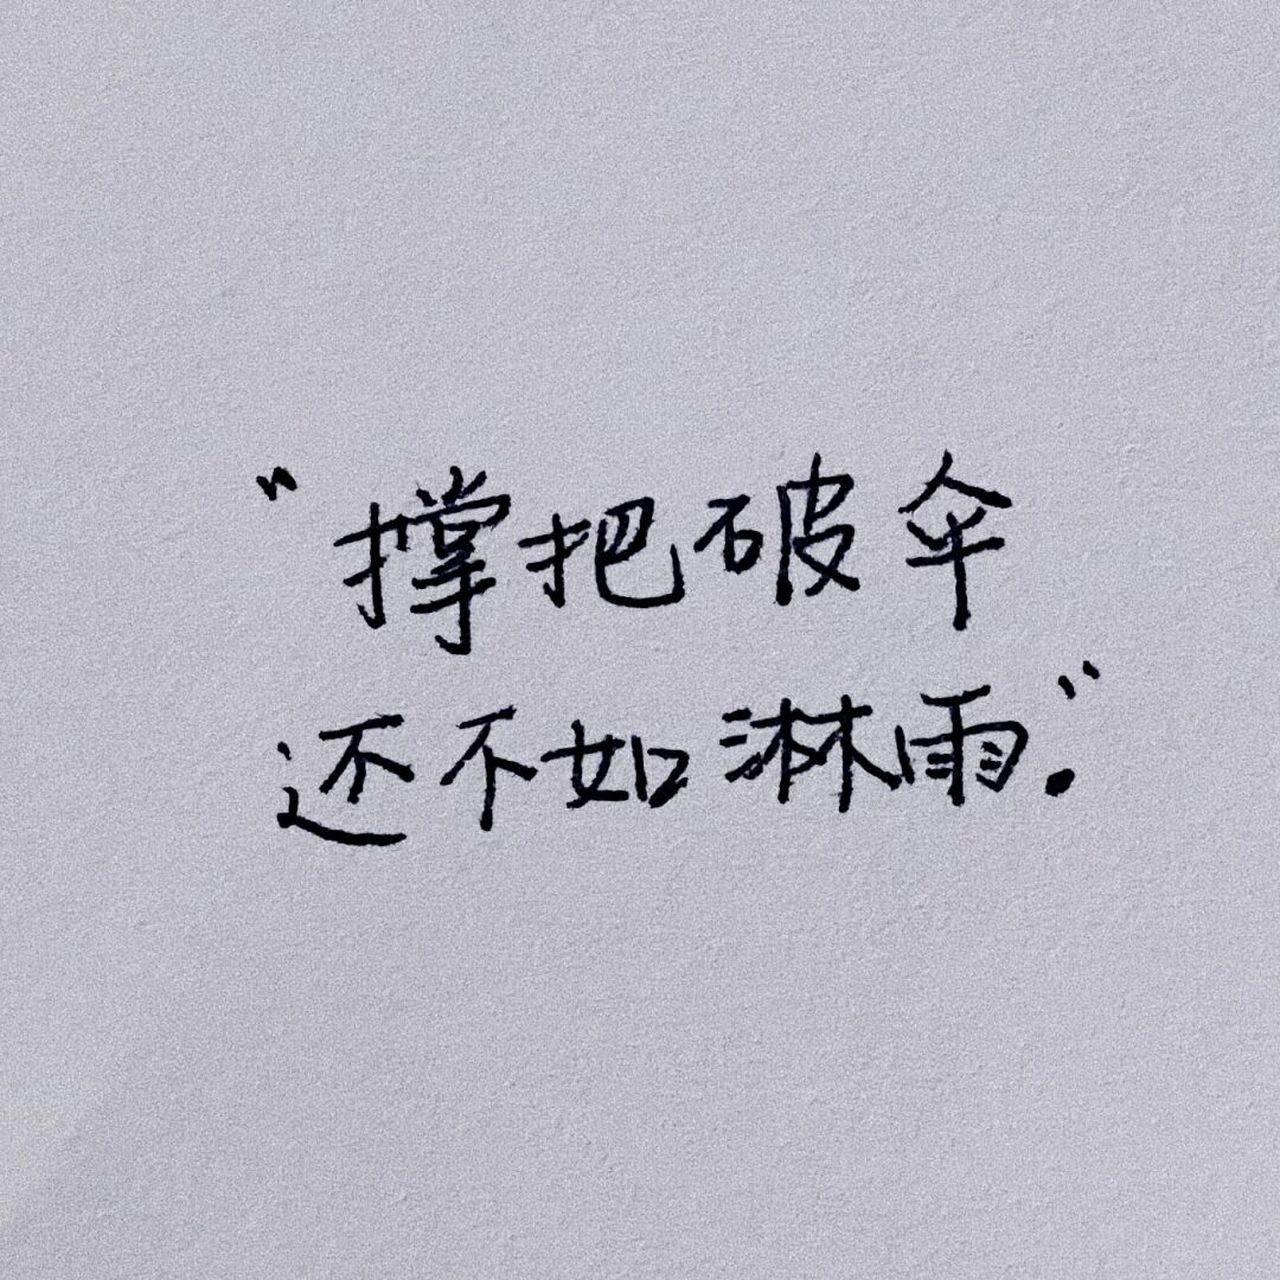 “撑把破伞
还不如淋雨.”